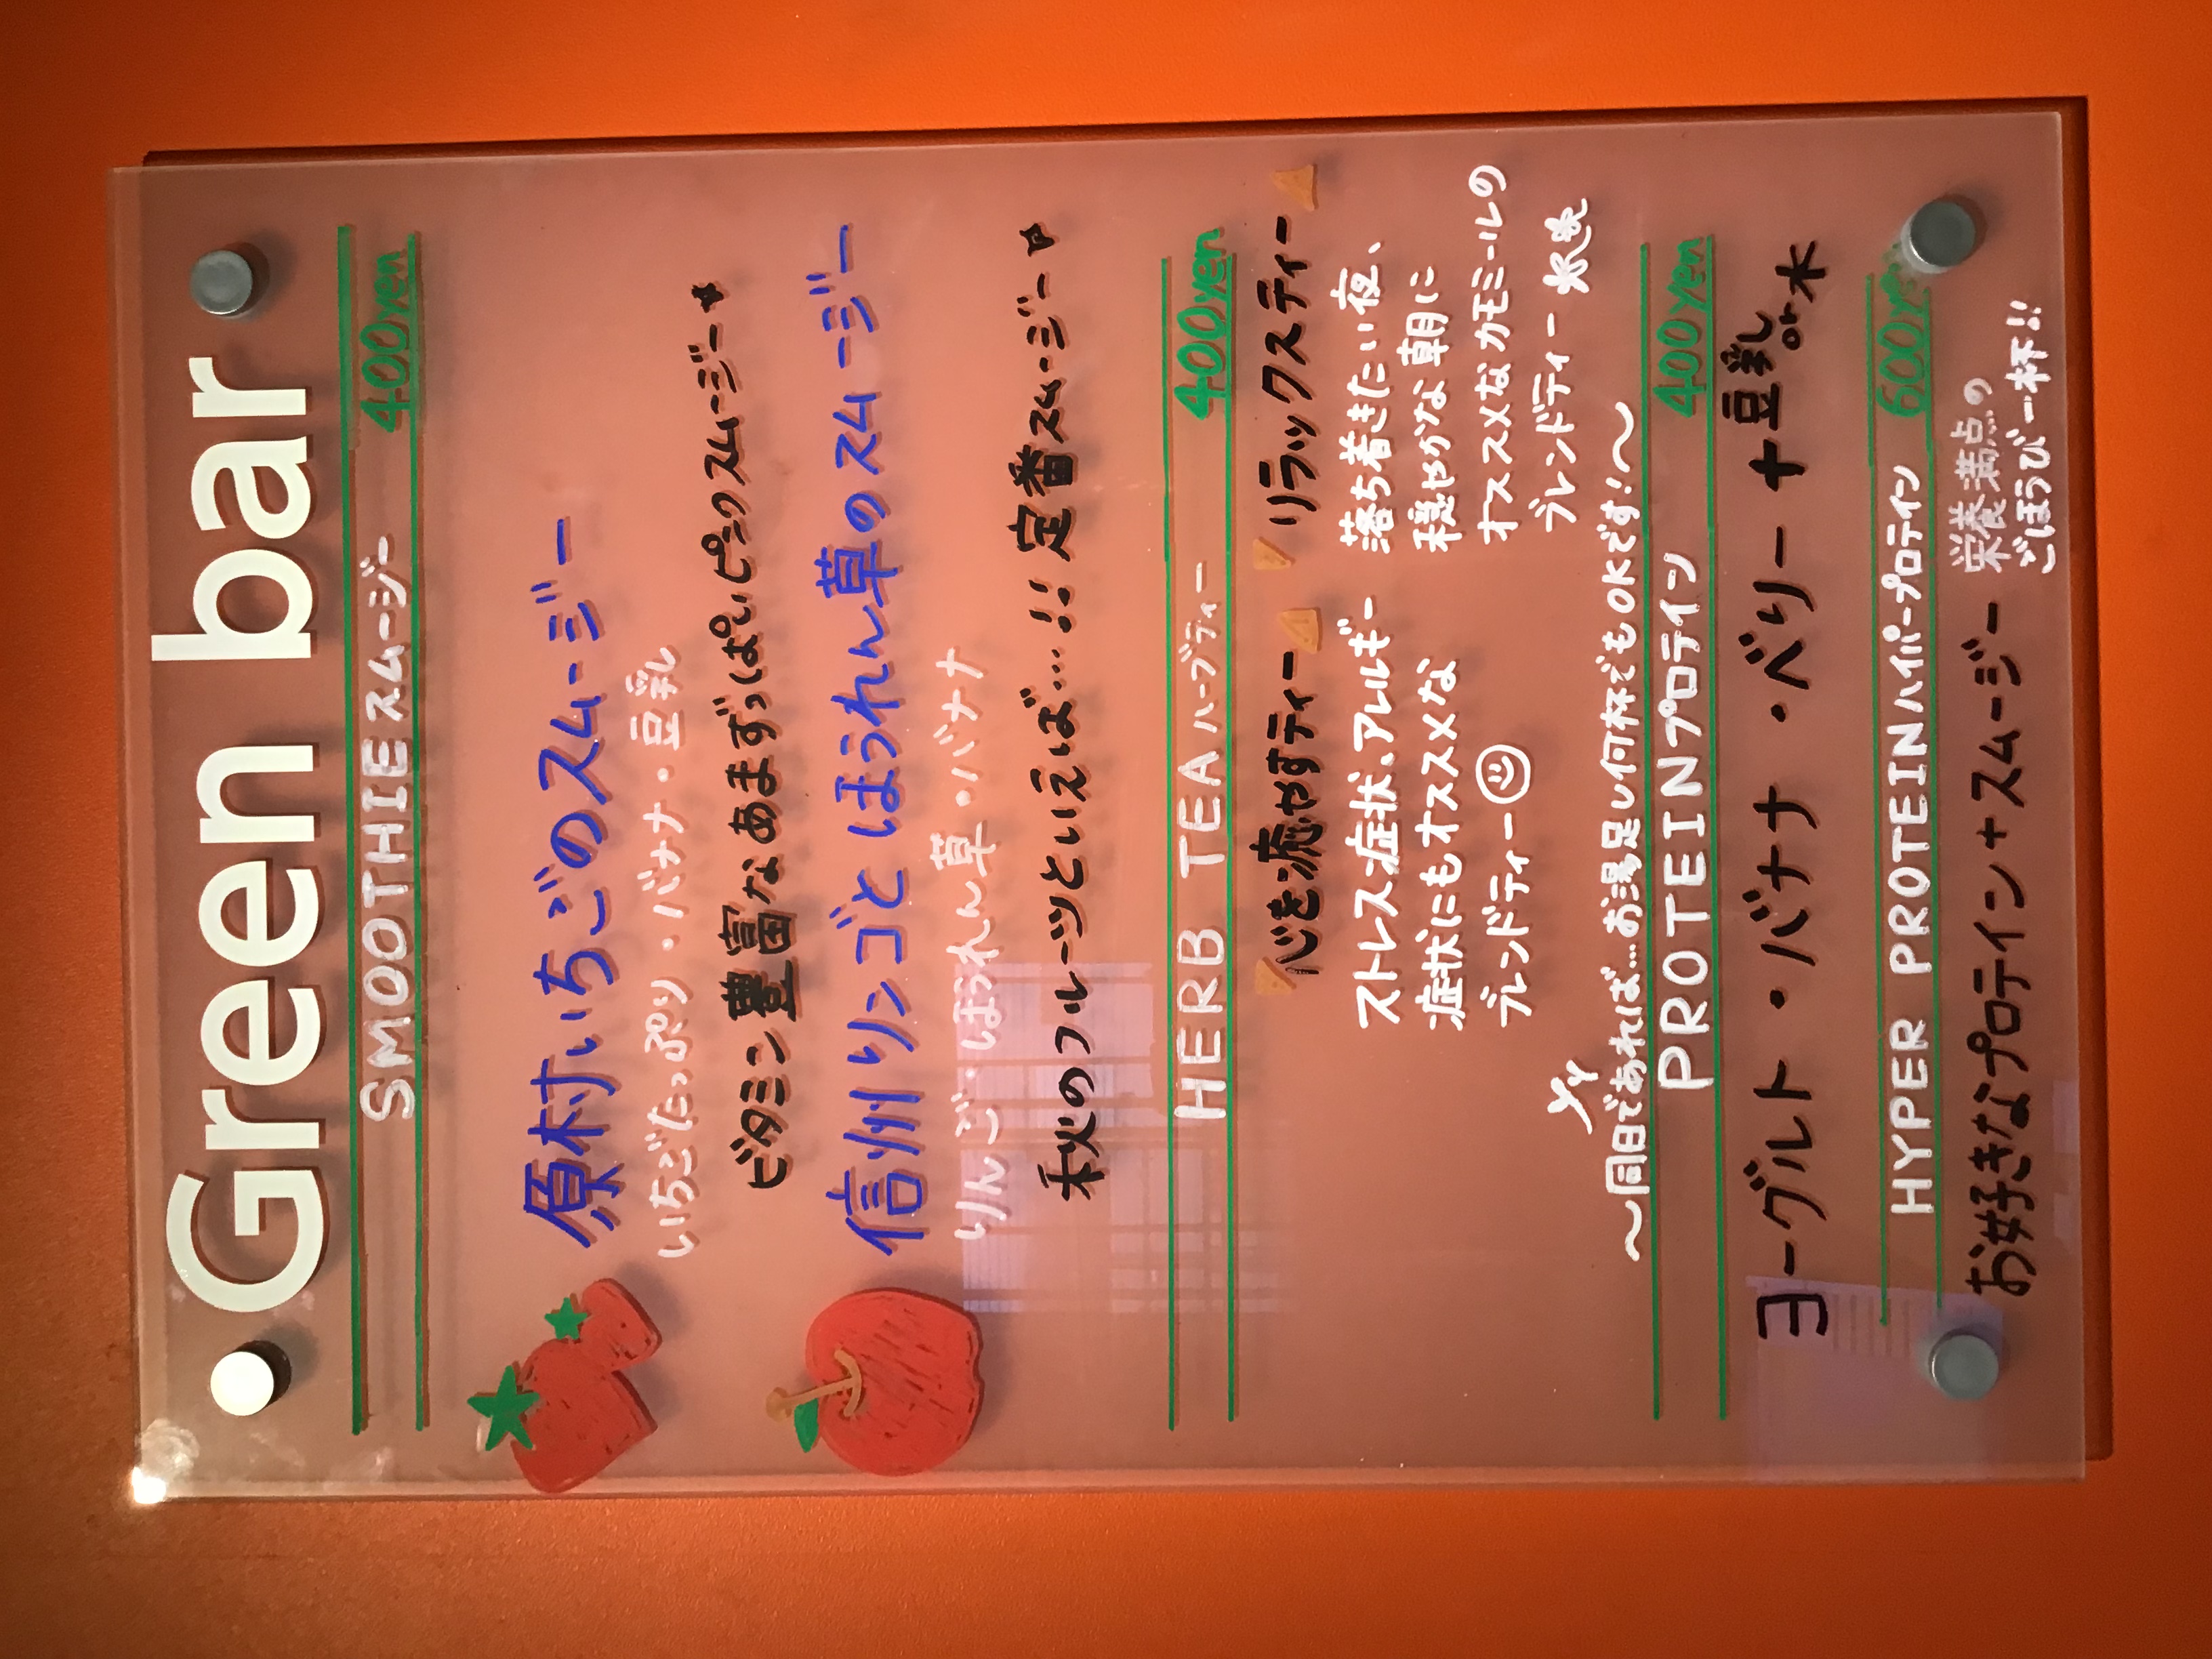 Green bar
SMOOTHIE スムージー 400yen
原村いちごのスムージー
いちごたっぷり・バナナ・豆乳
ビタミン豊富なあまずっぱいピンクスムージー
信州リンゴとほうれん草のスムージー
りんご・ほうれん草・バナナ
秋のフルーツといえば…!! 定番スムージー
HERB TEA ハーブティー 400yen
心を癒やすティー
ストレス症状、アレルギー
症状にもオススメな
ブレンドティー
リラックスティー
落ち着きたい夜、
穏やかな朝に
オススメなカモミールの
ブレンドティー
〜同日であれば…お湯足し何杯でもOKです!〜
PROTEIN プロテイン 400yen
ヨーグルト・バナナ・ベリー + 豆乳or水
HYPER PROTEIN ハイパープロテイン 600yen
お好きなプロテイン+スムージー
栄養満点の
ごほうび一杯!!